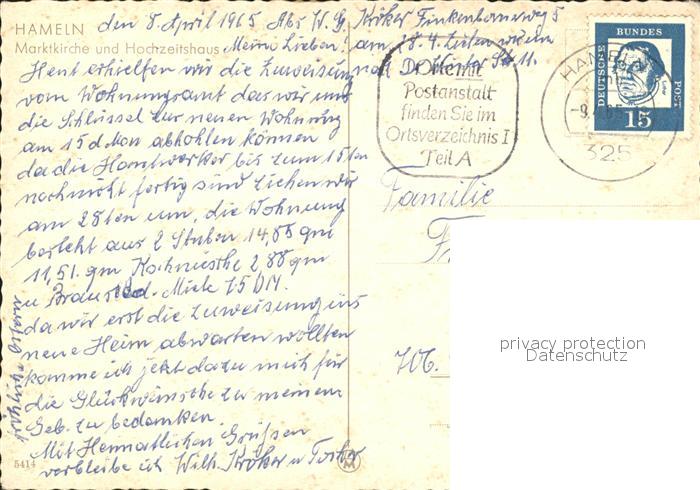 HAMELN den 8. April 1965 Abs W. Kröker Finkenbornerweg 5
Marktkirche und Hochzeitshaus Meine Lieben! am 28.4. ziehen wir um
Heut erhielten wir die Zuweisung nach Dr Winter Str 11.
vom Wohnungsamt das wir uns
die Schlüssel zur neuen Wohnung
am 15 d Mon abhohlen können
da die Handwerker bis zum 15ten
nochnicht fertig sind ziehen wir
am 28ten um, die Wohnung
besteht aus 2 Stuben 14,85 qm
11,51. qm Kochnische 2,88 qm
u Brausebad. Miete 75 DM.
da wir erst die Zuweisung ins
neue Heim abwarten wollten
komme ich jetzt dazu mich für
die Glückwünsche zu meinem
Geb. zu bedanken
Mit Heimatlichen Grüßen
verbleibe ich Wilh. Kröker u Tochter
5414
Orte mit
Postanstalt
finden Sie im
Ortsverzeichnis I
Teil A
HAMELN
-9.4.65
325
DEUTSCHE
BUNDES
POST
15
Familie
privacy protection
Datenschutz